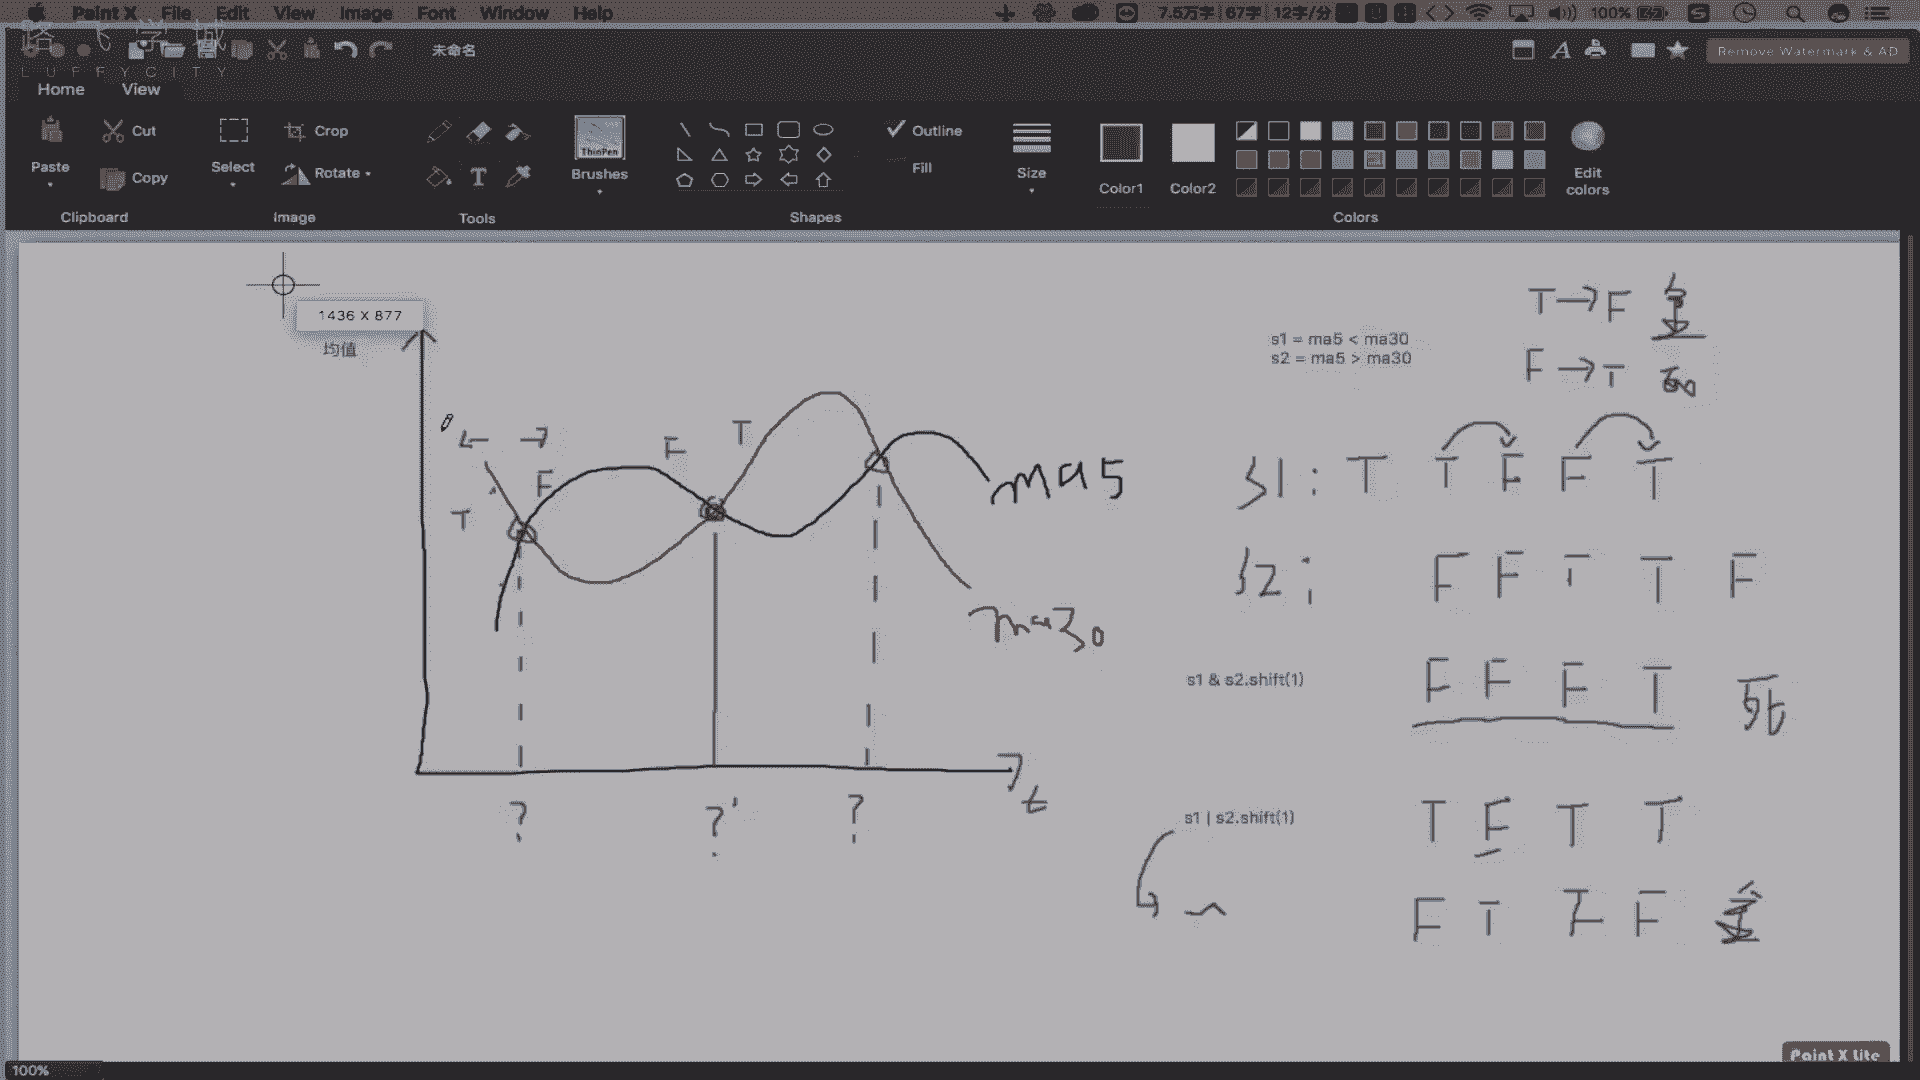 Paint X File Edit View Image Font Window Help 7.5万字 67字 12字/分 100%
路飞学城
LUFFYCITY
未命名
Remove Watermark & AD
Home View
Paste
Cut
Copy
Clipboard
Select
Crop
Rotate
Image
Tools
ThinPen
Brushes
Shapes
Outline
Fill
Size
Color1
Color2
Edit colors
Colors
1436 X 877
均值
T F F T
ma5
ma30
? ? ?
t
T→F 金
F→T 死
s1 = ma5 < ma30
s2 = ma5 > ma30
S1: T T F F T
S2: F F T T F
s1 & s2.shift(1) F F F T 死
s1 | s2.shift(1) T F T T
~ F T F F 金
100%
Paint X Lite